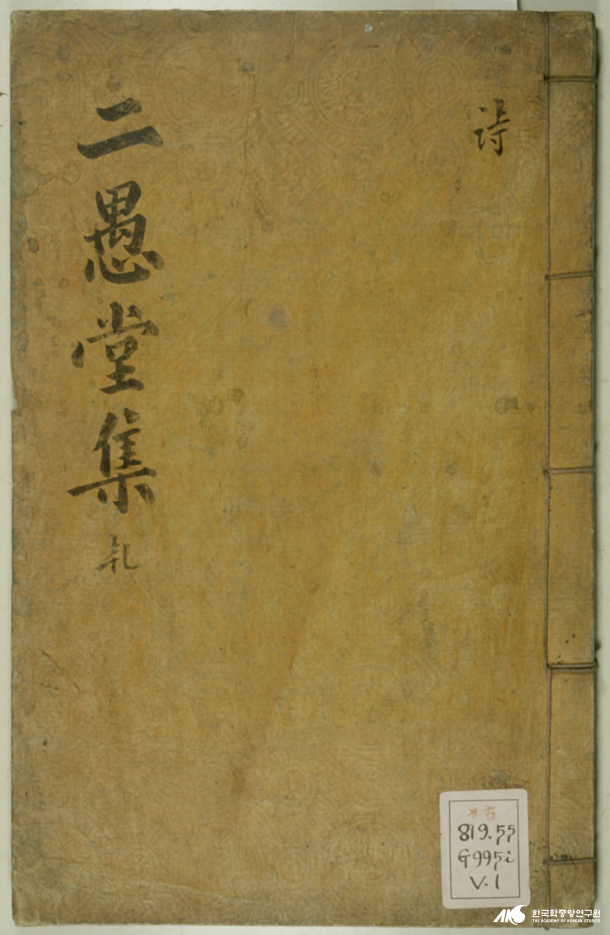 詩
二愚堂集
古
819.55
G995i
V.1
AKS 한국학중앙연구원
THE ACADEMY OF KOREAN STUDIES